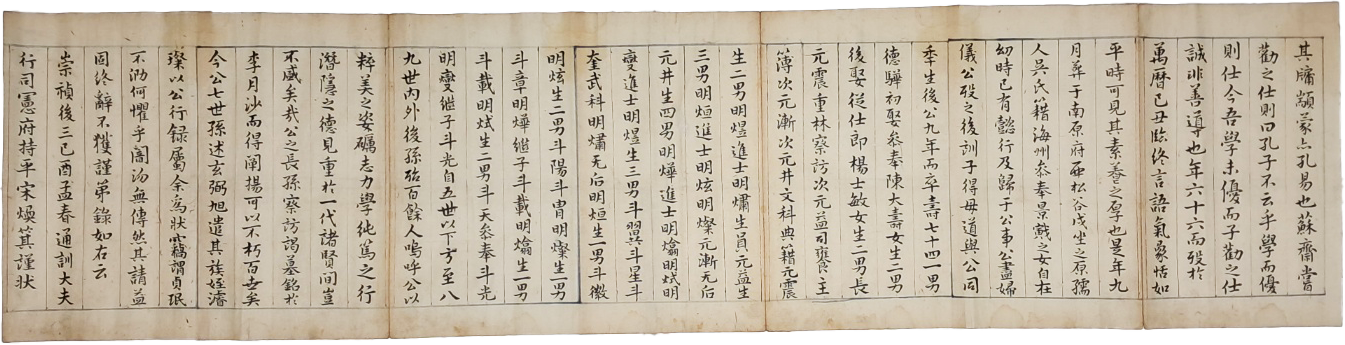 其牖顓蒙亦孔易也蘇齋嘗
勸之仕則曰孔子不云乎學而優
則仕今吾學未優而子勸之仕
誠非善導也年六十六而歿於
萬曆己丑臨終言語氣象恬如
平時可見其素養之厚也是年九
月葬于南原府西松谷戌坐之原孺
人吳氏籍海州叅奉景戭之女自在
幼時已有懿行及歸于公事公盡婦
儀公歿之後訓子得母道與公同
年生後公九年而卒壽七十四一男
德驊初娶叅奉陳大壽女生二男
後娶從仕郎楊士敏女生二男長
元震重林察訪次元益司饔主
簿次元漸次元井文科典籍元震
生二男明煜進士明熽生員元益生
三男明烜進士明炫明燦元漸无后
元井生四男明燁進士明熻明烒明
燮進士明煜生三男斗翼斗星斗
奎武科明熽无后明烜生一男斗徽
明炫生二男斗陽斗胄明燦生一男
斗章明燁継子斗載明熻生一男
斗載明烒生二男斗天叅奉斗光
明燮継子斗光自五世以下方至八
九世內外後孫殆百餘人嗚呼公以
粹美之姿礪志力學純篤之行
潛隱之德見重於一代諸賢間豈
不盛矣哉公之長孫察訪謁墓銘於
李月沙而得闡揚可以不朽百世矣
今公七世孫述玄弼旭遣其族姪濬
璨以公行録屬余爲狀窃謂貞珉
不泐何懼乎闇汤無傳然其請益
固終辭不獲謹苐錄如右云
崇禎後三己酉孟春通訓大夫
行司憲府持平宋煥箕謹狀